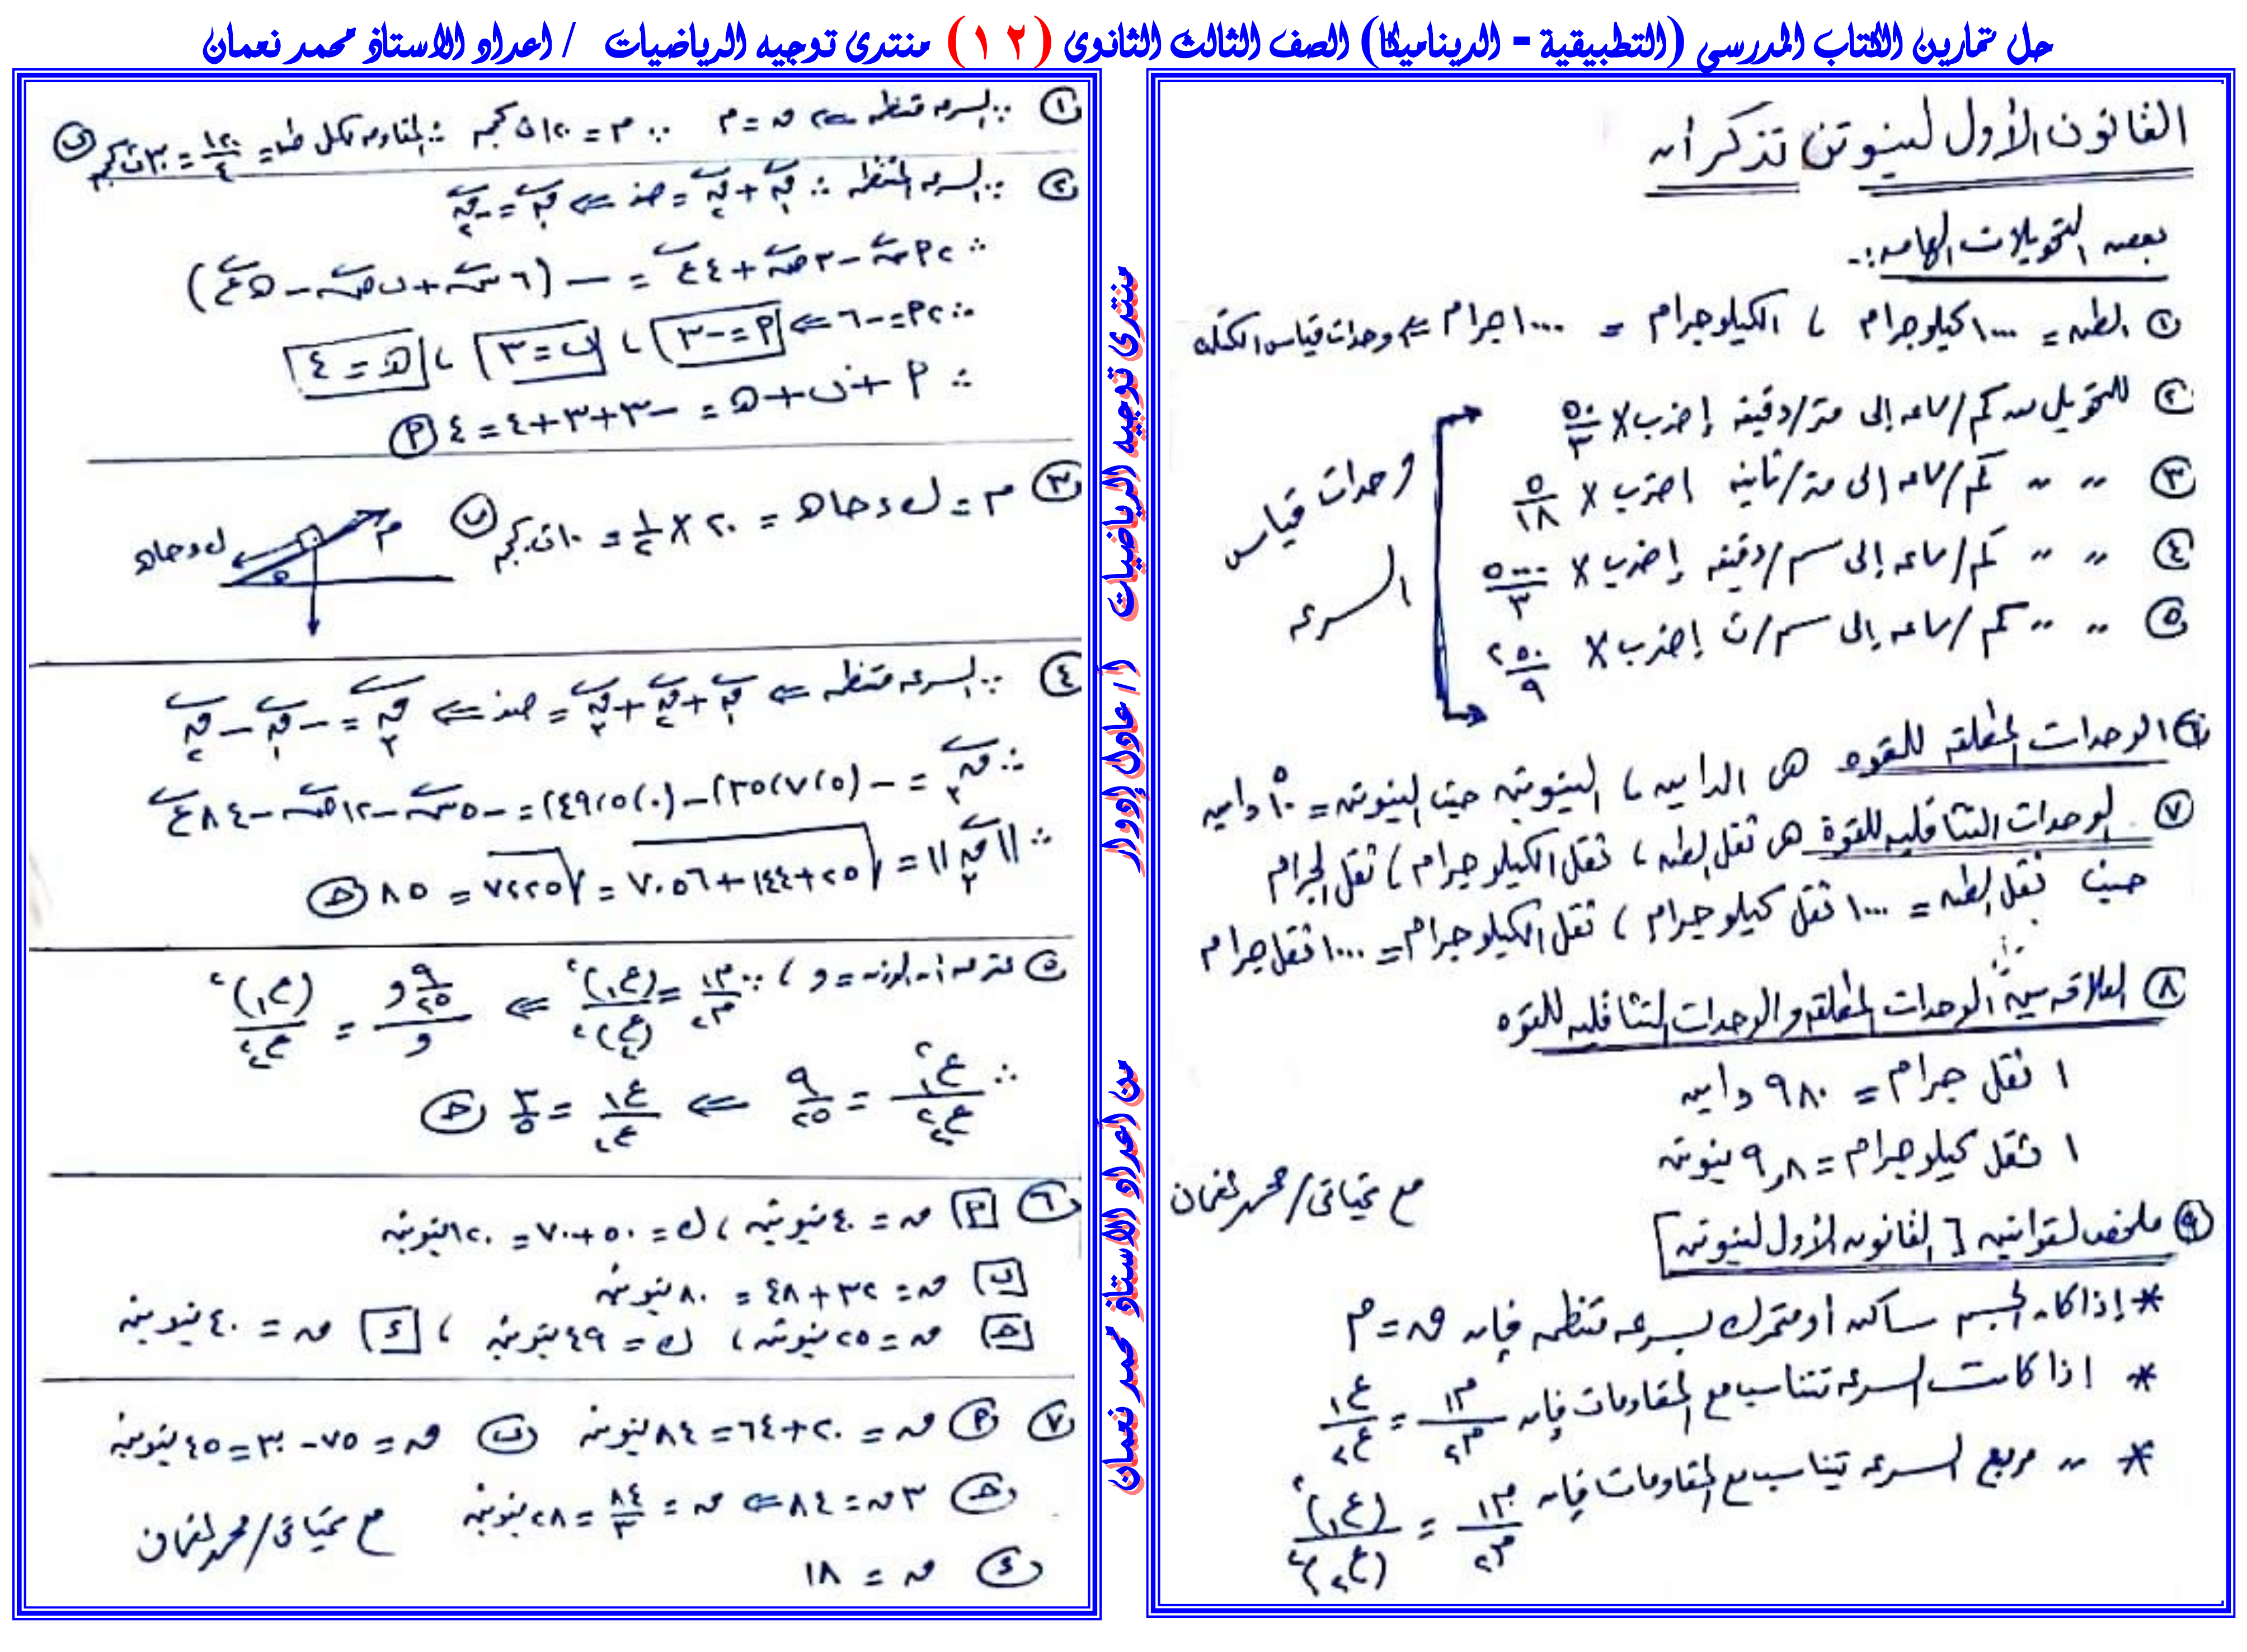 حل تمارين الكتاب المدرسي (التطبيقية - الديناميكا) الصف الثالث الثانوى (١٢) منتدى توجيه الرياضيات / اعداد الاستاذ محمد نعمان
القانون الأول لنيوتن تذكر أن
بعض التحويلات الهامه :-
① الطن = ١٠٠٠ كيلوجرام ، الكيلوجرام = ١٠٠٠ جرام ⇐ وحدات قياس الكتله
② للتحويل من كم/ساعه إلى متر/دقيقه إضرب × ٥٠/٣
③ " " كم/ساعه إلى متر/ثانيه اضرب × ٥/١٨
④ " " كم/ساعه إلى سم/دقيقه إضرب × ٥٠٠٠/٣
⑤ " " كم/ساعه إلى سم/ث إضرب × ٢٥٠/٩
وحدات قياس
السرعه
⑥ الوحدات المطلقه للقوه هى الداين ، النيوتن حيث النيوتن = ١٠^٥ داين
⑦ الوحدات التثاقليه للقوة هى ثقل الطن ، ثقل الكيلوجرام ، ثقل الجرام
حيث ثقل الطن = ١٠٠٠ ثقل كيلوجرام ، ثقل الكيلوجرام = ١٠٠٠ ثقل جرام
⑧ العلاقه بين الوحدات المطلقه والوحدات التثاقليه للقوه
١ ثقل جرام = ٩٨٠ داين
١ ثقل كيلوجرام = ٩,٨ نيوتن
مع تحياتى/محمد نعمان
⑨ ملخص لقوانين [القانون الأول لنيوتن]
* إذا كان الجسم ساكن أو متحرك بسرعه منتظمه فإن ق = م
* اذا كانت السرعه تتناسب مع المقاومات فإن م١/م٢ = ع١/ع٢
* " مربع السرعه تتناسب مع المقاومات فإن م١/م٢ = (ع١)^٢/(ع٢)^٢
منتدى توجيه الرياضيات
أ / عادل إدوار
من أعداد الاستاذ محمد نعمان
① ∵ السرعه منتظمه ⇐ ق = م ∴ م = ١٢٠ ث كجم ∴ المقاومه لكل طن = ١٢٠/٤ = ٣٠ ث كجم ب
② ∵ السرعه منتظمه ∴ ق١ + ق٢ = صفر ⇐ ق١ = -ق٢
∴ ٢أ س - ٣ص + ٤ع = -(٦س + ب ص - حـ ع)
∴ ٢أ = -٦ ⇐ أ = -٣ ، ب = ٣ ، حـ = ٤
∴ أ + ب + حـ = -٣+٣+٤ = ٤ أ
③ م = ك د حا هـ = ٢٠ × ١/٢ = ١٠ ث كجم ب
م
ك د حا هـ
هـ
④ ∵ السرعه منتظمه ⇐ ق١ + ق٢ + ق٣ = صفر ⇐ ق٣ = -ق١ - ق٢
∴ ق٣ = -(٥،٧،٣٥)-(٠،٥،٤٩) = -٥س - ١٢ص - ٨٤ع
∴ ||ق٣|| = √(٢٥+١٤٤+٧٠٥٦) = √٧٢٢٥ = ٨٥ حـ
⑤ نفرض أن الوزن = و ، ∵ م١/م٢ = (ع١)^٢/(ع٢)^٢ ⇐ ٩/٢٥ و/و = (ع١)^٢/ع٢^٢
∴ ع١^٢/ع٢^٢ = ٩/٢٥ ⇐ ع١/ع٢ = ٣/٥ حـ
⑥ أ ق = ٤٠ نيوتن ، ك = ٥٠+٧٠ = ١٢٠ نيوتن
ب ق = ٣٢+٤٨ = ٨٠ نيوتن
حـ ق = ٢٥ نيوتن ، ك = ٤٩ نيوتن ، د ق = ٤٠ نيوتن
⑦ أ ق = ٢٠+٦٤ = ٨٤ نيوتن ب ق = ٧٥-٣٠ = ٤٥ نيوتن
حـ ٣ق = ٨٤ ⇐ ق = ٨٤/٣ = ٢٨ نيوتن
د ق = ١٨
مع تحياتى/محمد نعمان